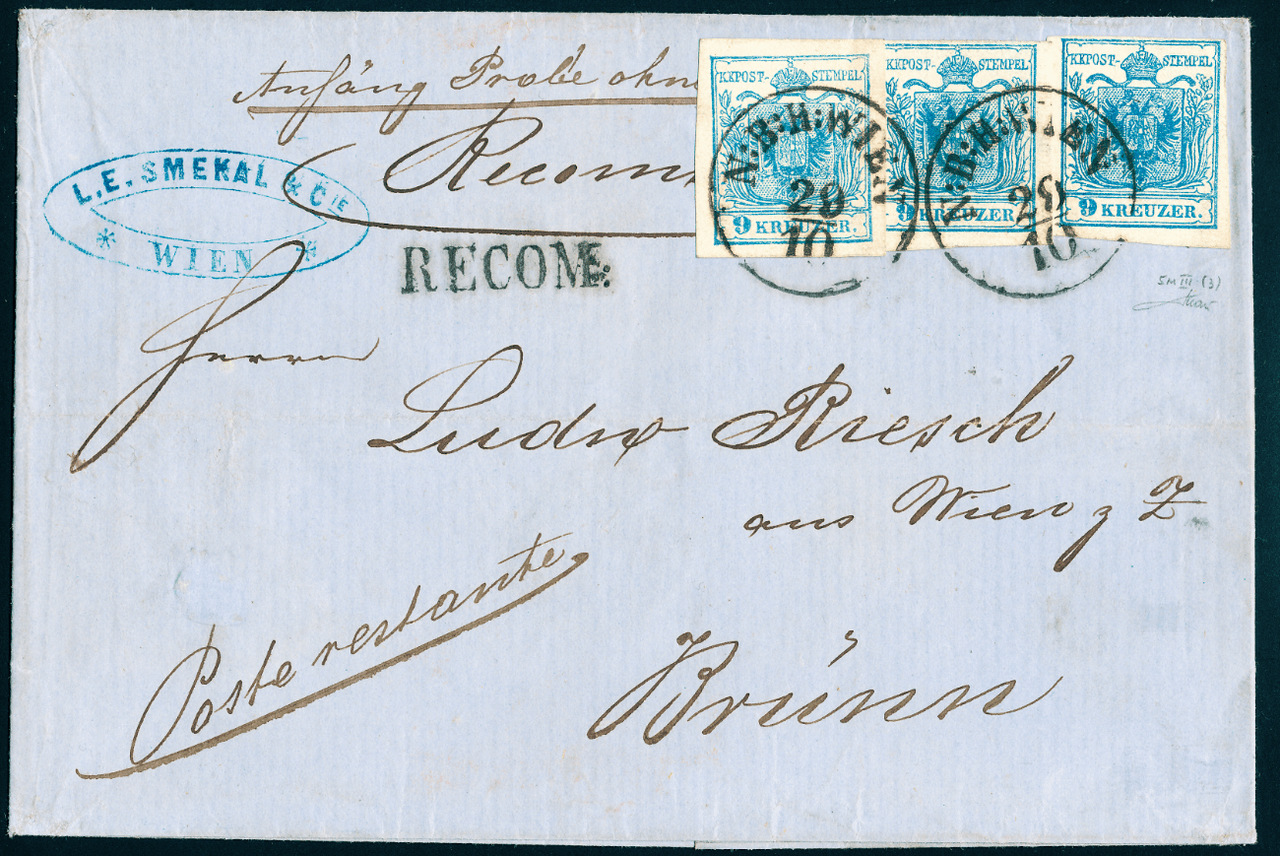 Anfäng Probe ohne
Recom
KKPOST-STEMPEL
9 KREUZER.
KKPOST-STEMPEL
9 KREUZER.
KKPOST-STEMPEL
9 KREUZER.
N:B:H:WIEN
29
10
N:B:H:WIEN
29
10
L.E. SMEKAL & CIE
* WIEN *
RECOM:
5M III (3)
Herrn
Ludw Riesch
aus Wien z Z
Poste restante
Brünn